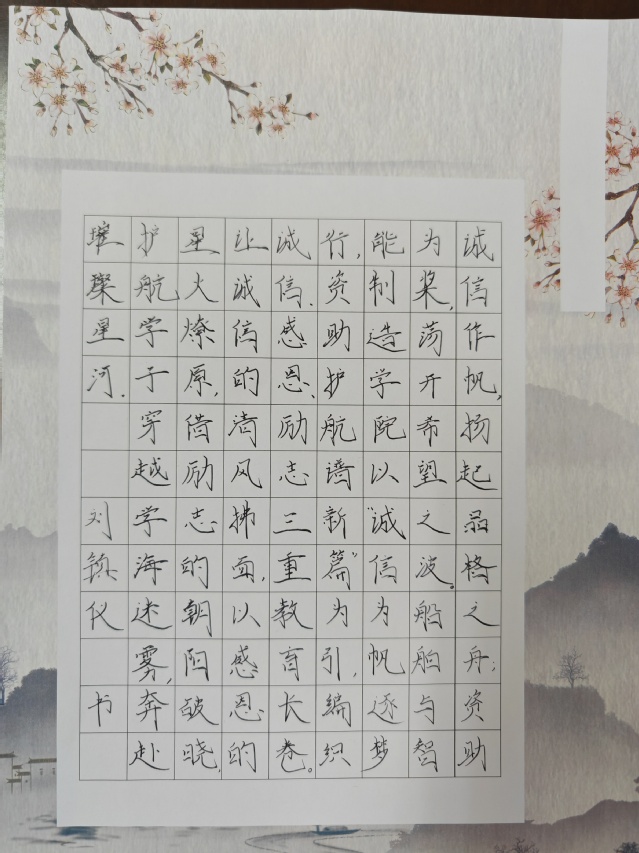 诚信作帆,扬起品格之舟;资助
为桨,荡开希望之波。船舶与智
能制造学院以“诚信为帆逐梦
行,资助护航谱新篇”为引,编织
诚信、感恩、励志三重教育长卷。
让诚信的清风拂面,以感恩的
星火燎原,借励志的朝阳破晓,
护航学子穿越学海迷雾,奔赴
璀璨星河.刘镇仪 书